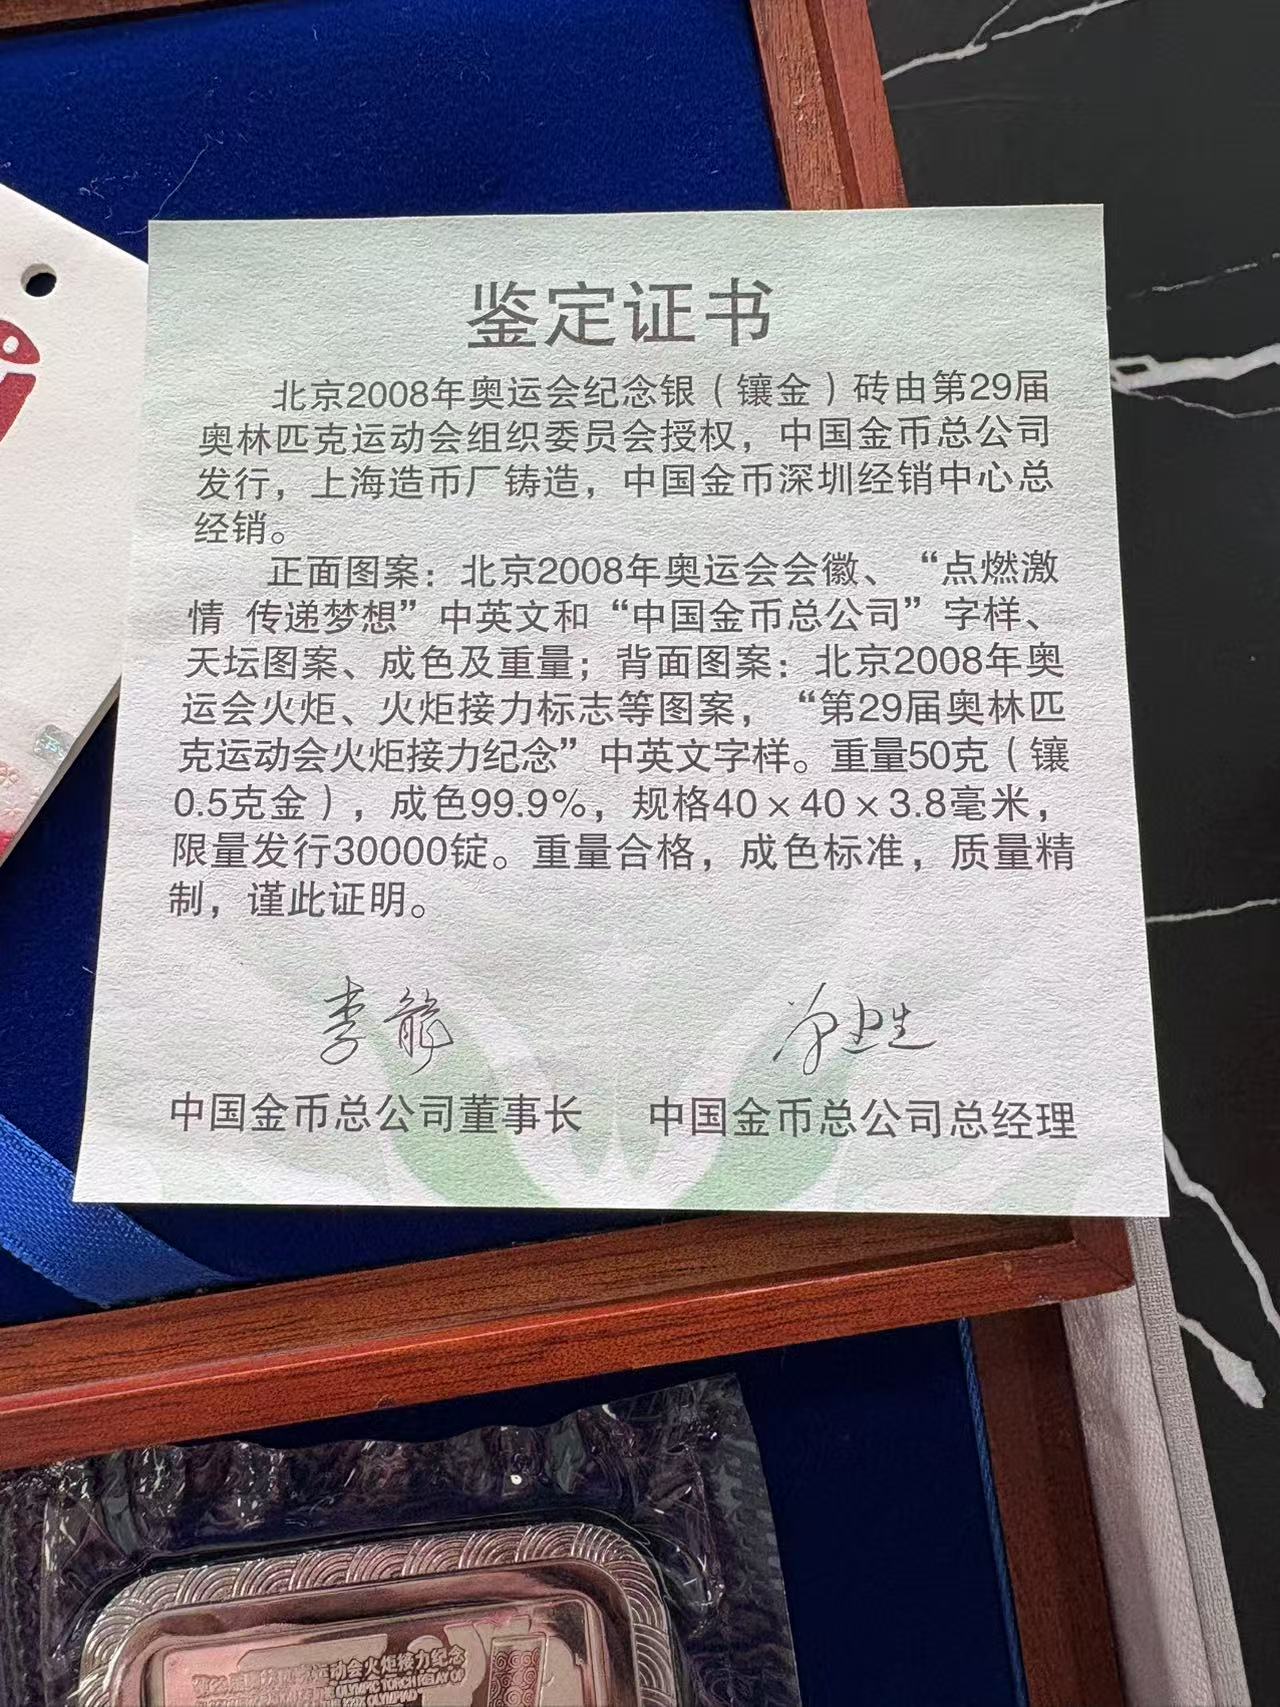 鉴定证书
北京2008年奥运会纪念银（镶金）砖由第29届
奥林匹克运动会组织委员会授权，中国金币总公司
发行，上海造币厂铸造，中国金币深圳经销中心总
经销。
正面图案：北京2008年奥运会会徽、“点燃激
情 传递梦想”中英文和“中国金币总公司”字样、
天坛图案、成色及重量；背面图案：北京2008年奥
运会火炬、火炬接力标志等图案，“第29届奥林匹
克运动会火炬接力纪念”中英文字样。重量50克（镶
0.5克金），成色99.9%，规格40×40×3.8毫米，
限量发行30000锭。重量合格，成色标准，质量精
制，谨此证明。
中国金币总公司董事长 中国金币总公司总经理
运动会火炬接力纪念
OLYMPIC TORCH RELAY OF
OLYMPIAD